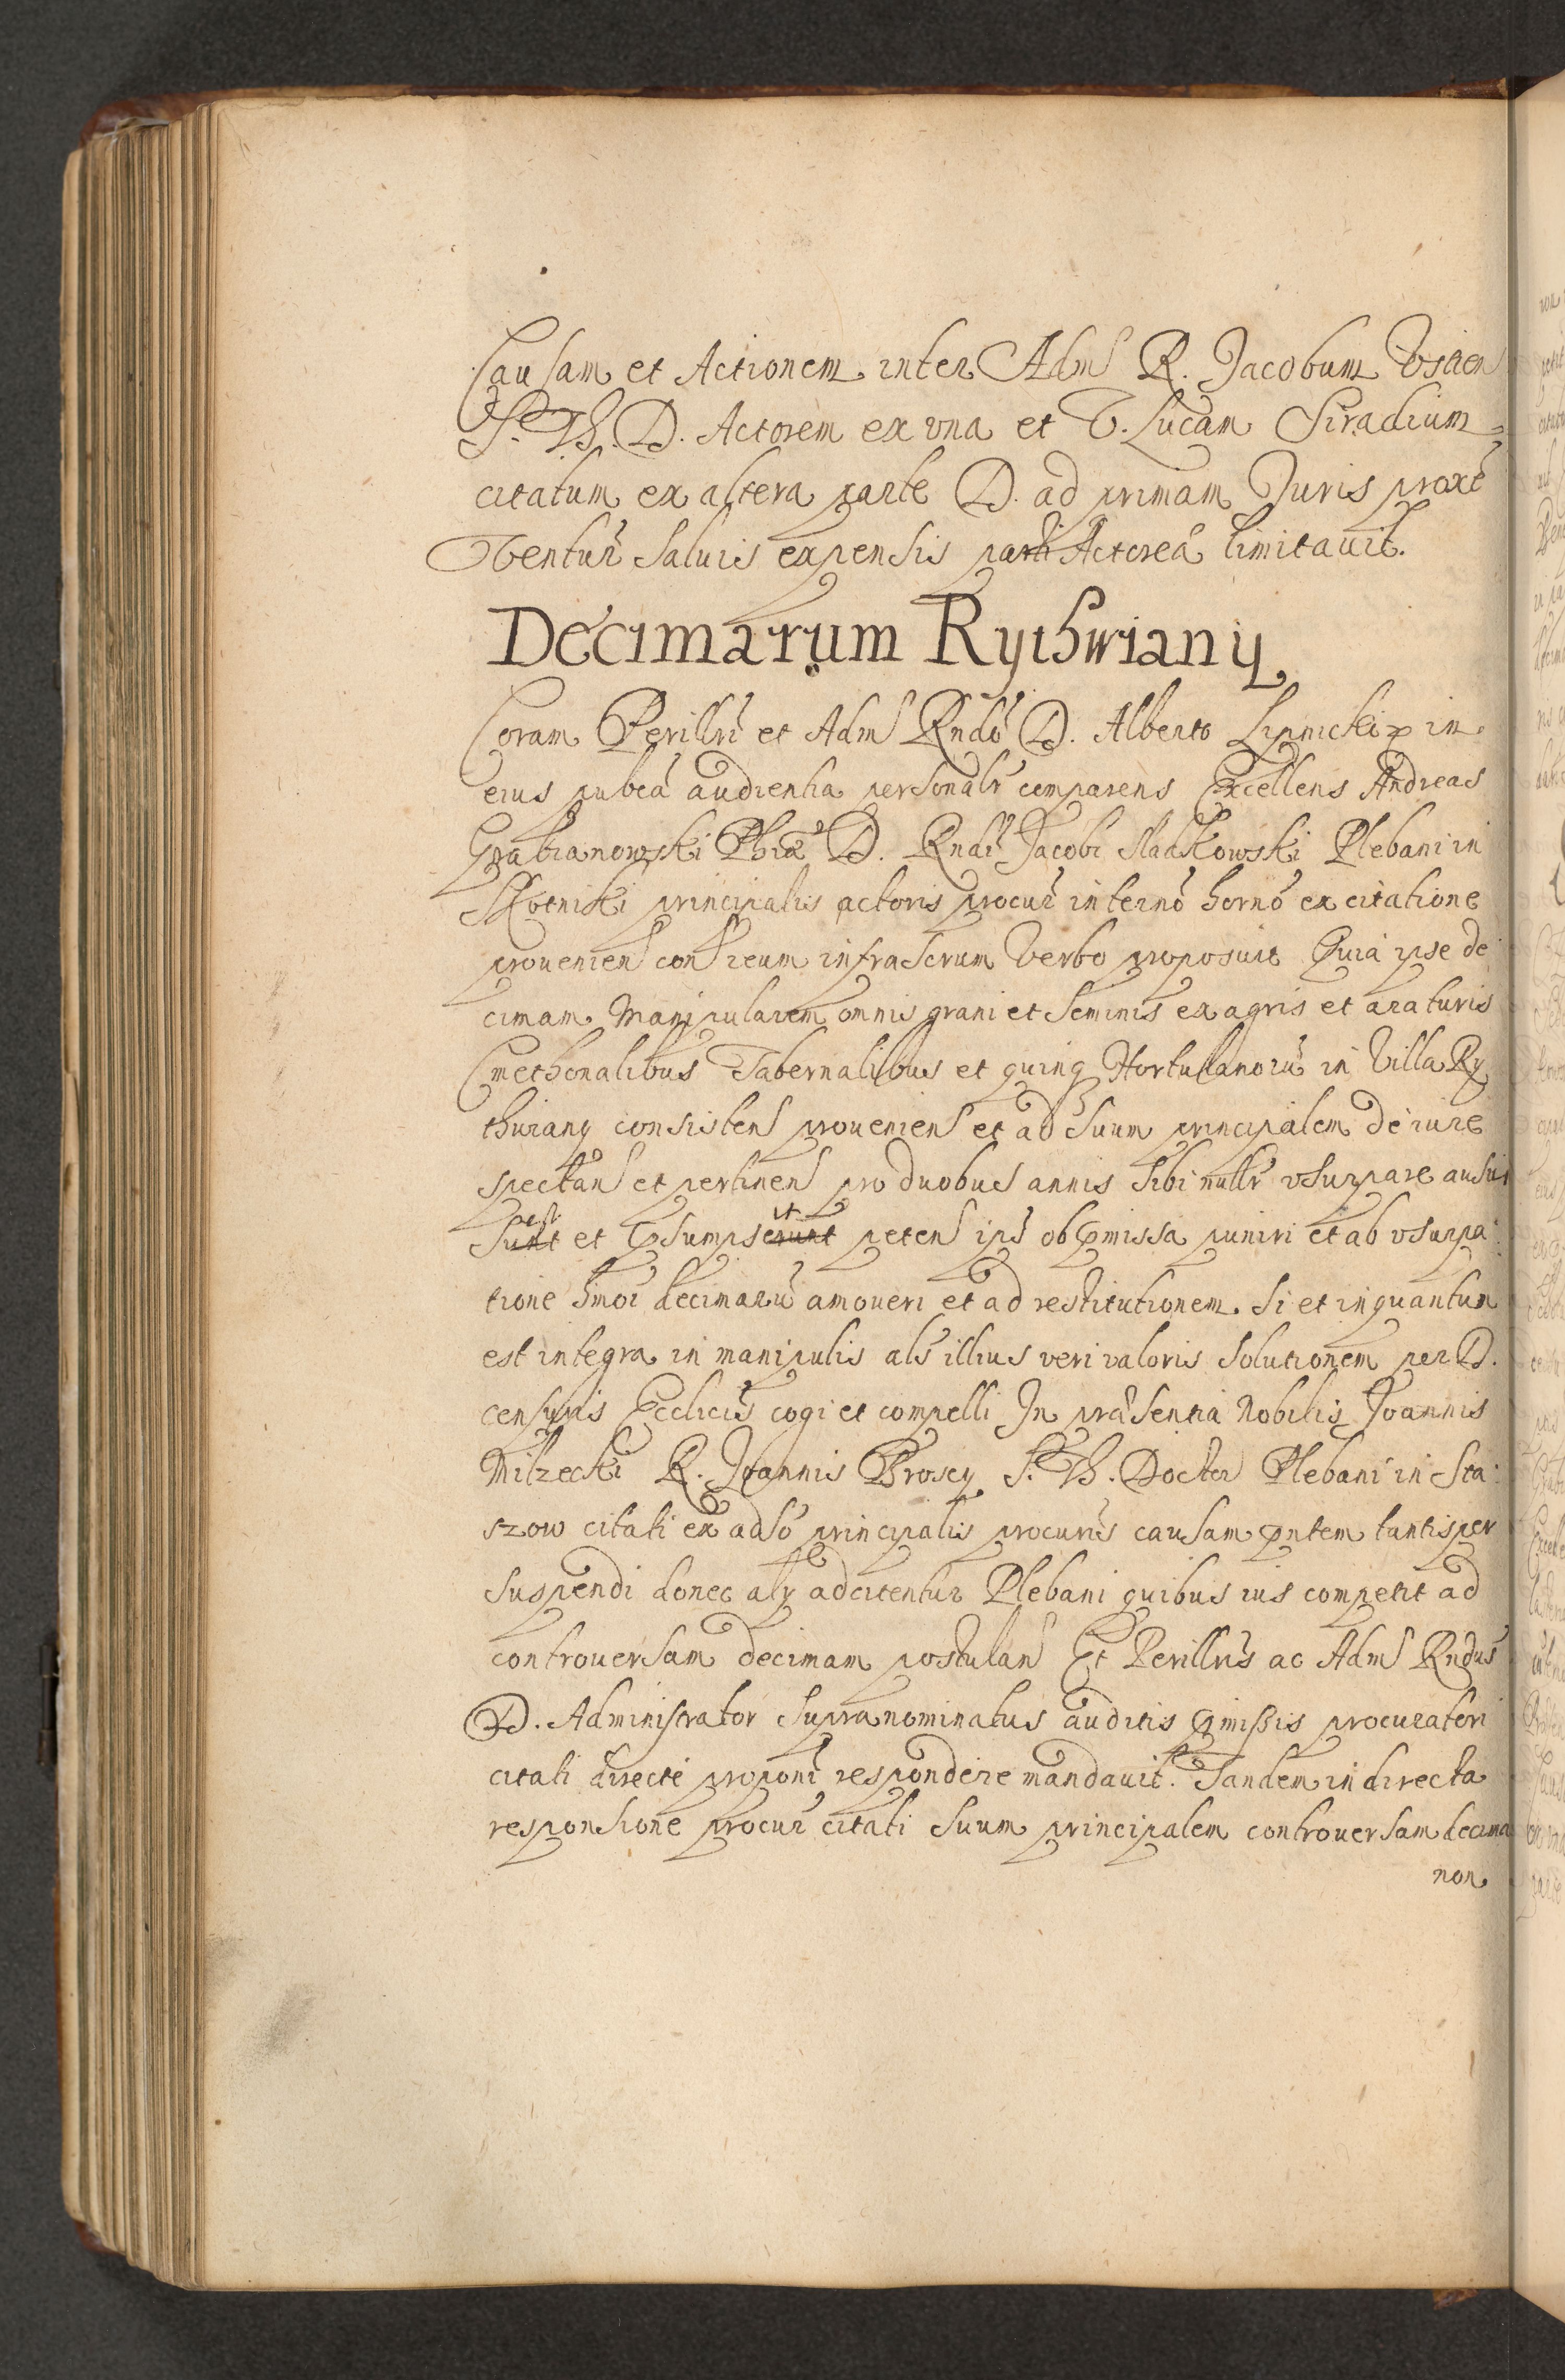 Causam et Actionem inter Adm R. Jacobum Vscien
S. Th. D. Actorem ex vna et V. Lucam Siradium
citatum ex altera parte D. ad primam Juris proxe
Obentur saluis expensis parti Actorea limitauit.
Decimarum Rythwiany
Coram Perillri et Adm Rndo D. Alberto Lipnicki in
eius publca audientia personalr comparens Excellens Andreas
Grabianowski Phiæ D. Rndi Jacobi Sladkowski Plebani in
Skotniki principalis actoris procur in termo horno ex citatione
prouenien con reum infrascrum Verbo proposuit Quia ipse de
cimam Manipularem omnis grani et seminis ex agris et araturis
Cmethonalibus Tabernalibus et quinq Hortulanoru in Villa Ry
thwiany consisten prouenien et ad suum principalem de iure
spectan et pertinen pro duobus annis sibi nullr vsurpare ausus
est
it
Sunt et psumpserunt peten ips ob pmissa puniri et ab vsurpa:
tione hmoi decimaru amoueri et ad restitutionem si et inquantum
est integra in manipulis als illius veri valoris solutionem per D.
censuris Ecclicis cogi et compelli In præsentia Nobilis Joannis
Milzecki R. Joannis Broscy S. Th. Doctor Plebani in Sta:
szow citati ex adso principalis procuris causam pntem tantisper
suspendi donec aly adcitentur Plebani quibus ius competit ad
controuersam decimam postulan Et Perillris ac Adm Rndus
D. Administrator supranominatus auditis pmissis procuratori
citati directe proponi respondere mandauit. Tandem in directa
responsione procur citati suum principalem controuersam decima
non